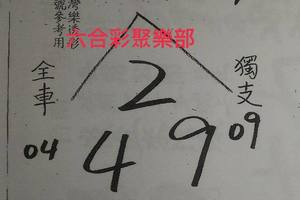 灣樂透彩
號參考用
六合彩聚樂部
全車
獨支
2
04
4 9
09